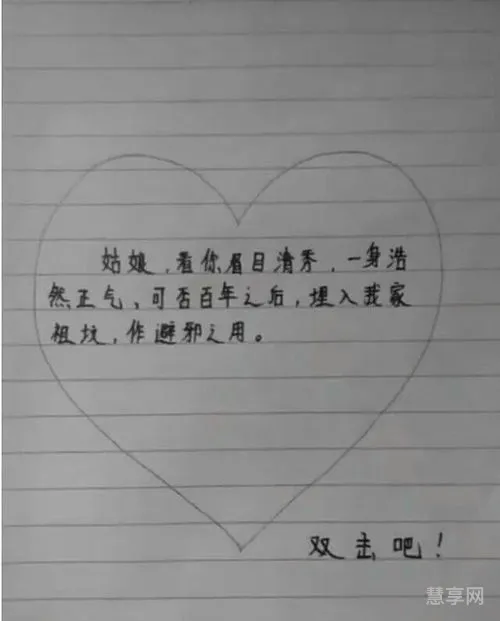 姑娘，看你眉目清秀，一身浩
然正气、可否百年之后，埋入我家
祖坟，作避邪之用。
双击吧！
慧享网